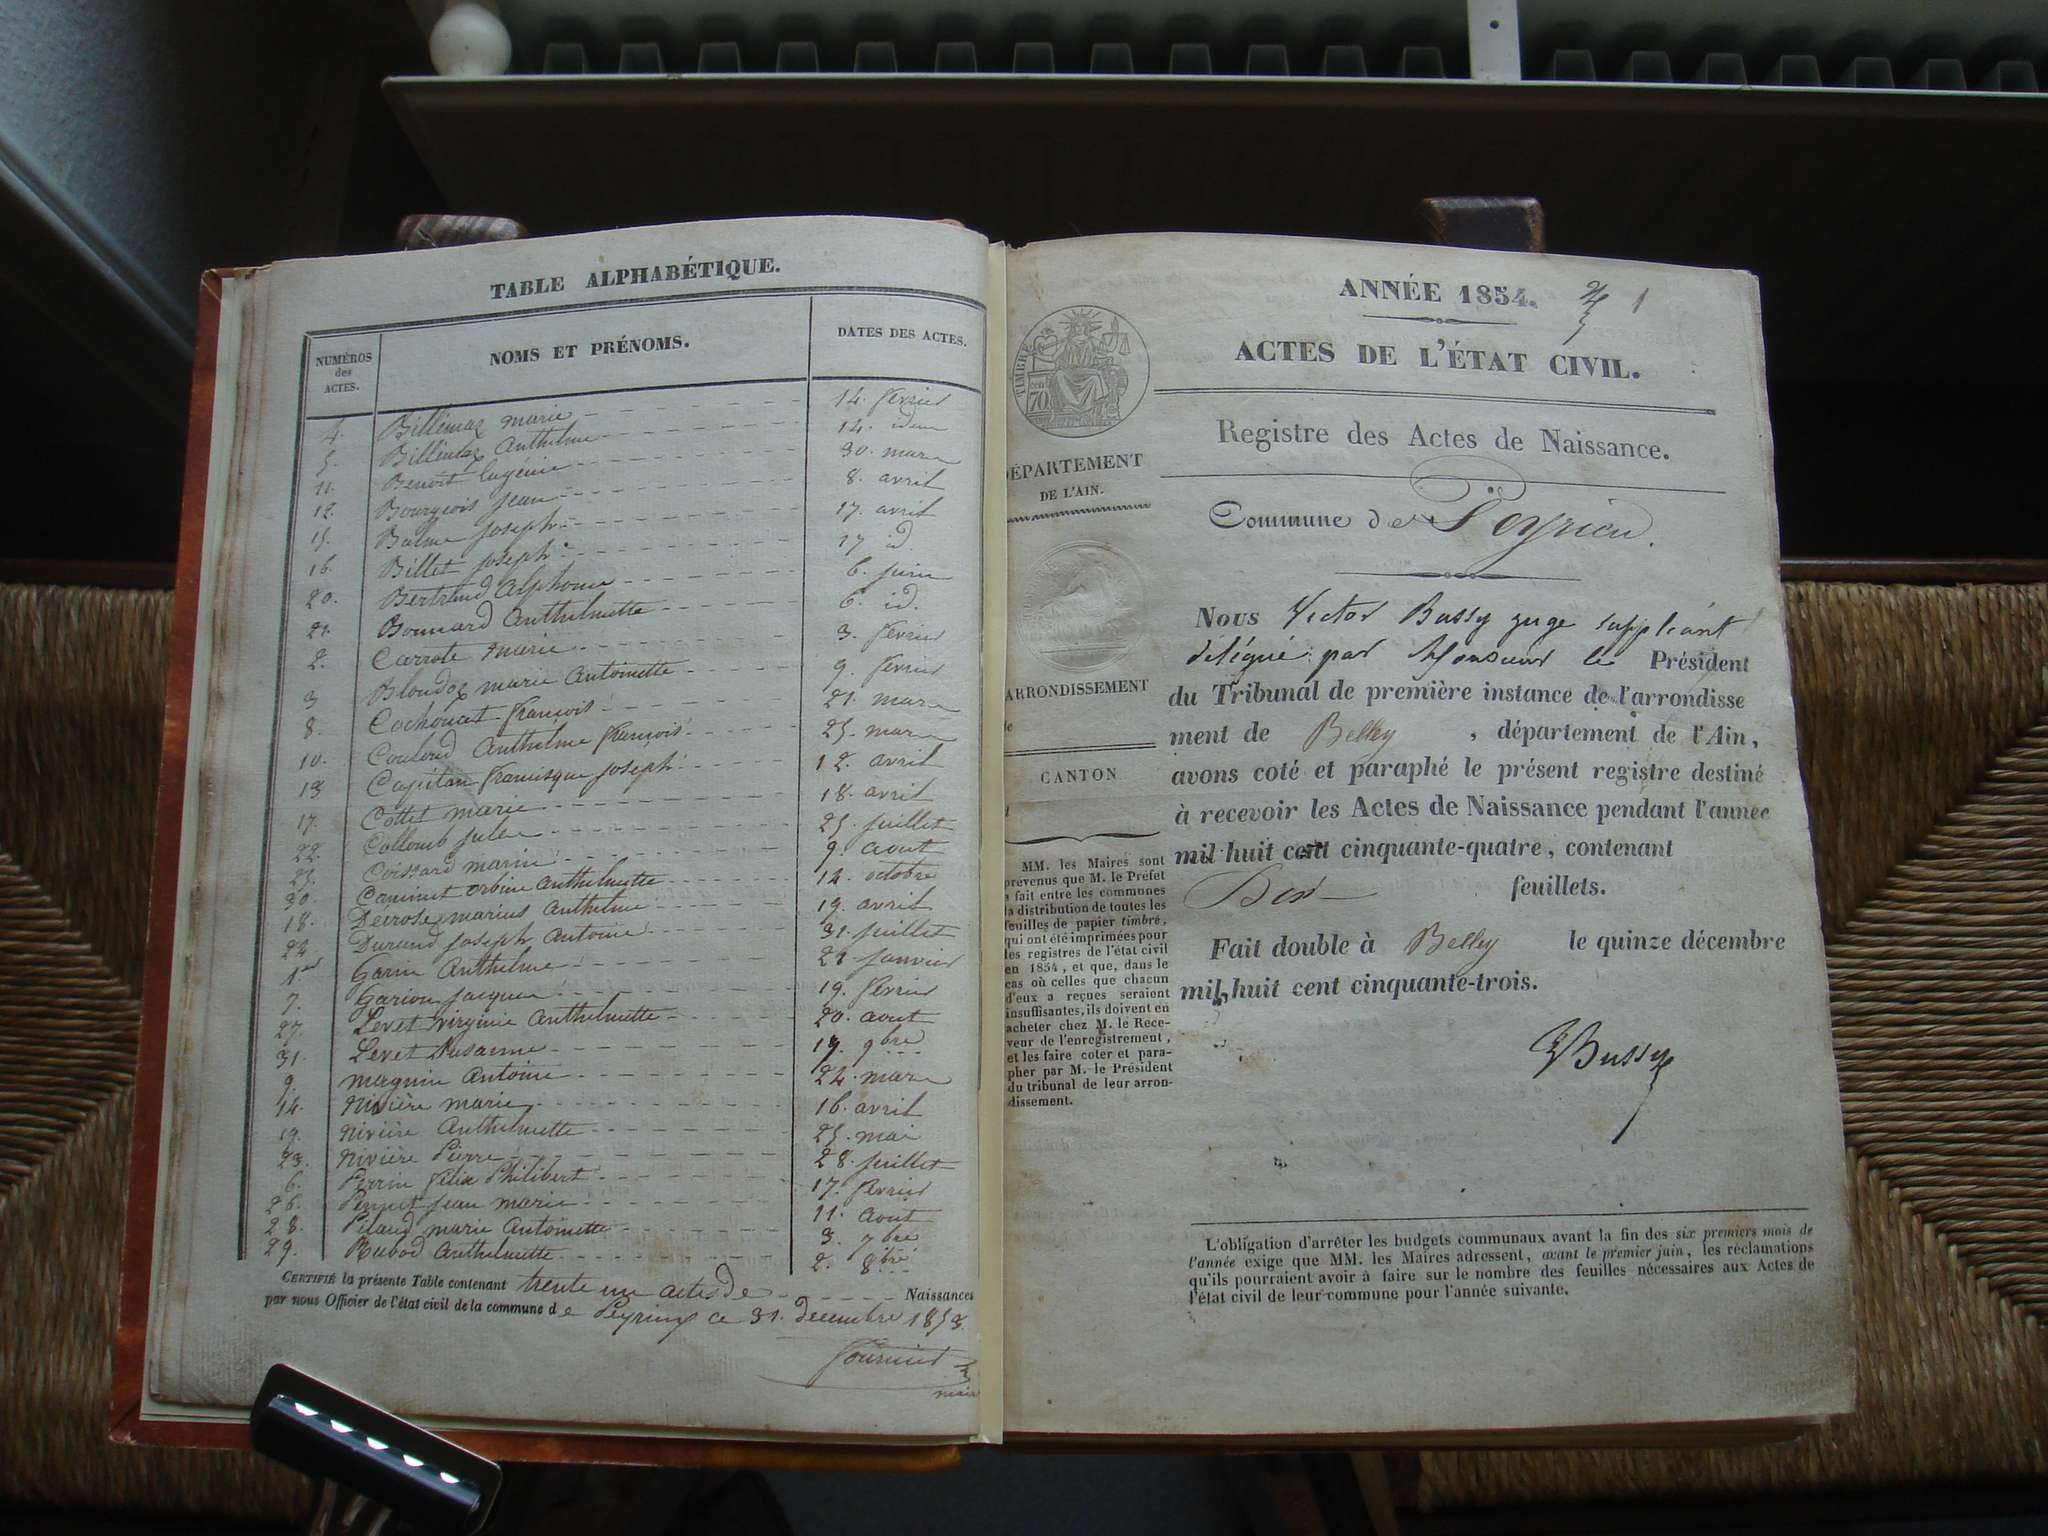 TABLE ALPHABÉTIQUE.
NUMÉROS des ACTES. NOMS ET PRÉNOMS. DATES DES ACTES.
4. Billémaz marie 14. fevrier
5. Billémaz Anthelme 14. idem
11. Benoit Eugénie 30. mars
12. Bourgeois Jean 8. avril
15. Balme Joseph 17. avril
16. Billet Joseph 17 id.
20. Bertrand Alphonse 6. juin
21. Bonnard Anthelmette 6. id.
2. Carrote marie 3. fevrier
3 Bloudoz marie Antoinette 9. fevrier
8. Cochonat françois 21. mars
10. Couloud Anthelme françois 25. mars
13 Capitan francisque Joseph 12. avril
17. Cottet marie 18. avril
22. Collomb Jules 25. juillet
25. Coissard marie 9. aout
30. Caminet Anthelmette 12. octobre
18. Derose marius Anthelme 19. avril
24 Durand Joseph Antoine 31. juillet
1er Garin Anthelme 21 janvier
7. Garion Jacques 19. fevrier
27. Levet virginie Anthelmette 20. aout
31. Levet Susanne 19. 9bre
9. magnin Antoine 24. mars
14. Nivière marie 16. avril
19. Nivière Anthelmette 25. mai
23. Nivière Pierre 28. juillet
6. Perrin félix Philibert 17. fevrier
26. Jean marie 11. aout
28. Pilaud marie Antoinette 3. 7bre
29. Rubod Anthelmette 2. 8bre
CERTIFIÉ la présente Table contenant trente un actes de Naissances
par nous Officier de l'état civil de la commune de Peyrieux ce 31. decembre 1853.
fournier
maire
ANNÉE 1854. 1
ACTES DE L'ÉTAT CIVIL.
TIMBRE
70 cent
Registre des Actes de Naissance.
DÉPARTEMENT
DE L'AIN.
Commune de Peyrieu.
Nous Victor Bussy juge suppléant
délégué par Monsieur le Président
ARRONDISSEMENT
du Tribunal de première instance de l'arrondisse
ment de Belley, département de l'Ain,
CANTON
avons coté et paraphé le présent registre destiné
à recevoir les Actes de Naissance pendant l'année
mil huit cent cinquante-quatre, contenant
Dix feuillets.
Fait double à Belley le quinze décembre
mil huit cent cinquante-trois.
VBussy
MM. les Maires sont
prévenus que M. le Préfet
a fait entre les communes
la distribution de toutes les
feuilles de papier timbré,
qui ont été imprimées pour
les registres de l'état civil
en 1854, et que, dans le
cas où celles que chacun
d'eux a reçues seraient
insuffisantes, ils doivent en
acheter chez M. le Rece-
veur de l'enregistrement,
et les faire coter et para-
pher par M. le Président
du tribunal de leur arron-
dissement.
L'obligation d'arrêter les budgets communaux avant la fin des six premiers mois de
l'année exige que MM. les Maires adressent, avant le premier juin, les réclamations
qu'ils pourraient avoir à faire sur le nombre des feuilles nécessaires aux Actes de
l'état civil de leur commune pour l'année suivante.